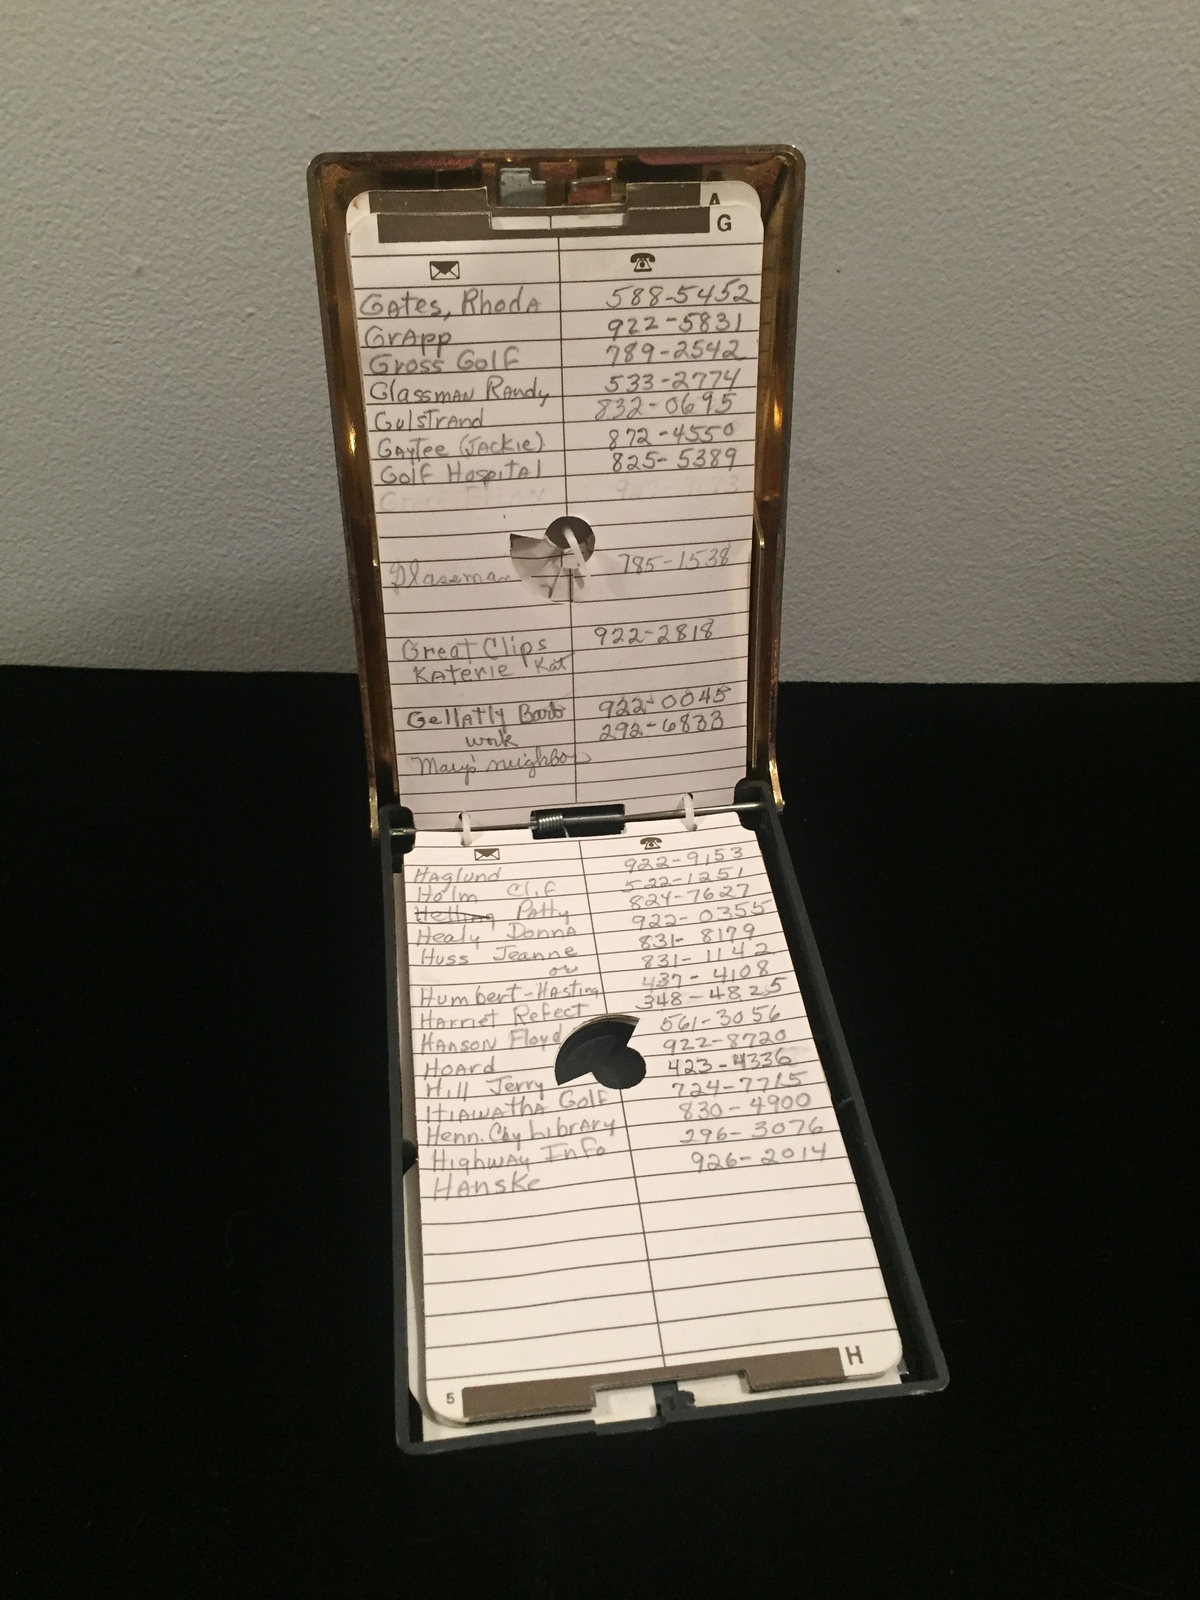 A
G
Gates, Rhoda 588-5452
Grapp 922-5831
Gross Golf 789-2542
Glassman Randy 533-2774
Gulstrand 832-0695
Gaytee (Jackie) 872-4550
Golf Hospital 825-5389
Glassman 785-1538
Great Clips 922-2818
Katerie Kat
Gellatly Barb 922-0045
work 292-6833
Mary's neighbor
Haglund 922-9153
Holm Clif 522-1251
Helling Patty 824-7627
Healy Donna 922-0355
Huss Jeanne 831-8179
or 831-1142
Humbert-Hasting 437-4108
Harriet Refect 348-4825
Hanson Floyd 561-3056
Hoard 922-8720
Hill Jerry 423-4336
Hiawatha Golf 724-7715
Henn. Cty Library 830-4900
Highway Info 296-3076
Hanske 926-2014
5 H